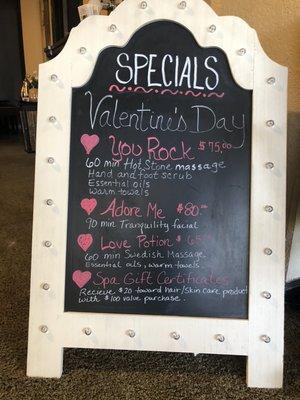 SPECIALS
Valentine's Day
You Rock $75.00
60 min Hot Stone massage
Hand and foot scrub
Essential oils
Warm towels
Adore Me $80.00
90 min Tranquility facial
Love Potion $65
60 min Swedish Massage
Essential oils, warm towels
Spa Gift Certificates
Recieve $20 toward hair/skin care product
with $100 value purchase